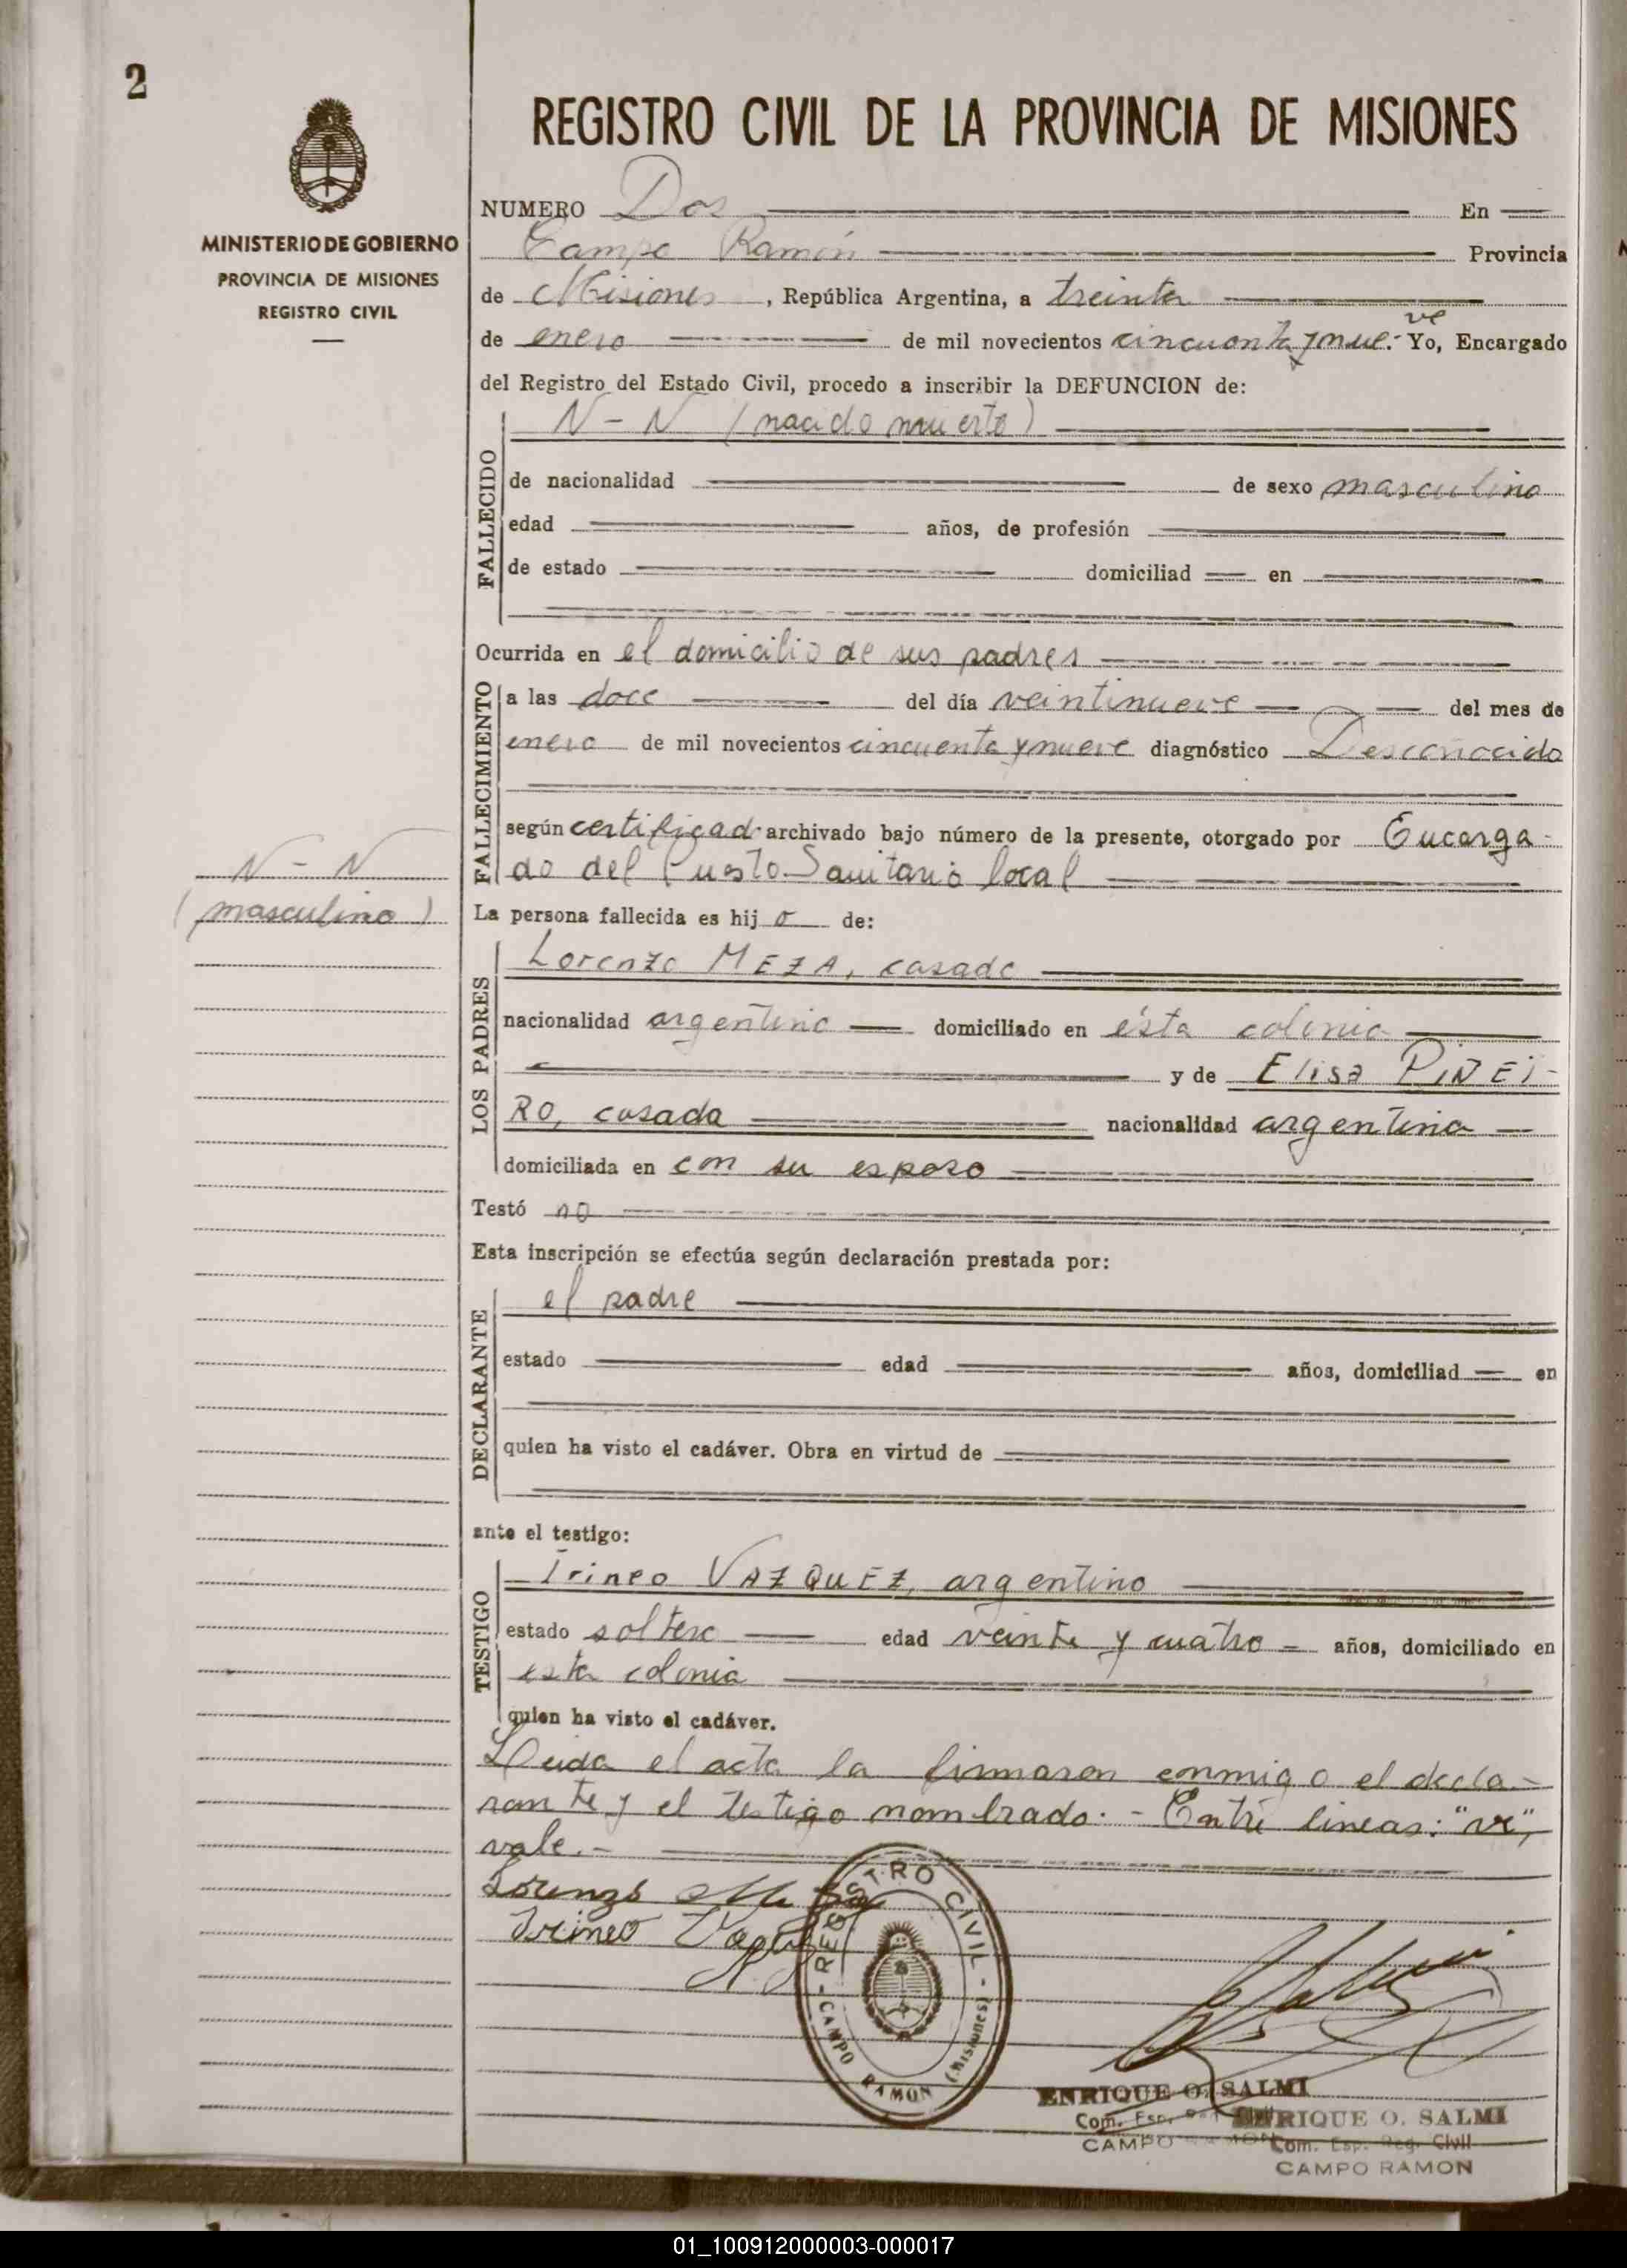 2
MINISTERIO DE GOBIERNO
PROVINCIA DE MISIONES
REGISTRO CIVIL
REGISTRO CIVIL DE LA PROVINCIA DE MISIONES
NUMERO Dos En
Campo Ramón Provincia
de Misiones, República Argentina, a treinta
ve
de enero de mil novecientos cincuenta y nue.- Yo, Encargado
del Registro del Estado Civil, procedo a inscribir la DEFUNCION de:
FALLECIDO
N - N (nacido muerto)
de nacionalidad de sexo masculino
edad años, de profesión
de estado domiciliad en
Ocurrida en el domicilio de sus padres
FALLECIMIENTO
a las doce del día veintinueve del mes de
enero de mil novecientos cincuenta y nueve diagnóstico Desconocido
según certificad archivado bajo número de la presente, otorgado por Encarga-
do del Puesto Sanitario local
N - N
(masculino)
La persona fallecida es hijo de:
LOS PADRES
Lorenzo MEZA, casado
nacionalidad argentino domiciliado en ésta colonia
y de Elisa PIÑEI-
RO, casada nacionalidad argentina
domiciliada en con su esposo
Testó no
Esta inscripción se efectúa según declaración prestada por:
DECLARANTE
el padre
estado edad años, domiciliad en
quien ha visto el cadáver. Obra en virtud de
ante el testigo:
TESTIGO
Irineo VAZQUEZ, argentino
estado soltero edad veinte y cuatro años, domiciliado en
esta colonia
quien ha visto el cadáver.
Leida el acta la firmaron conmigo el decla-
rante y el testigo nombrado.- Entre lineas: "ve",
vale.-
Lorenzo Meza
Irineo Vazquez
REGISTRO CIVIL - CAMPO RAMON (Misiones)
ENRIQUE O. SALMI
Com. Esp.
CAMPO RAMON
ENRIQUE O. SALMI
Com. Esp. Reg. Civil
CAMPO RAMON
01_100912000003-000017